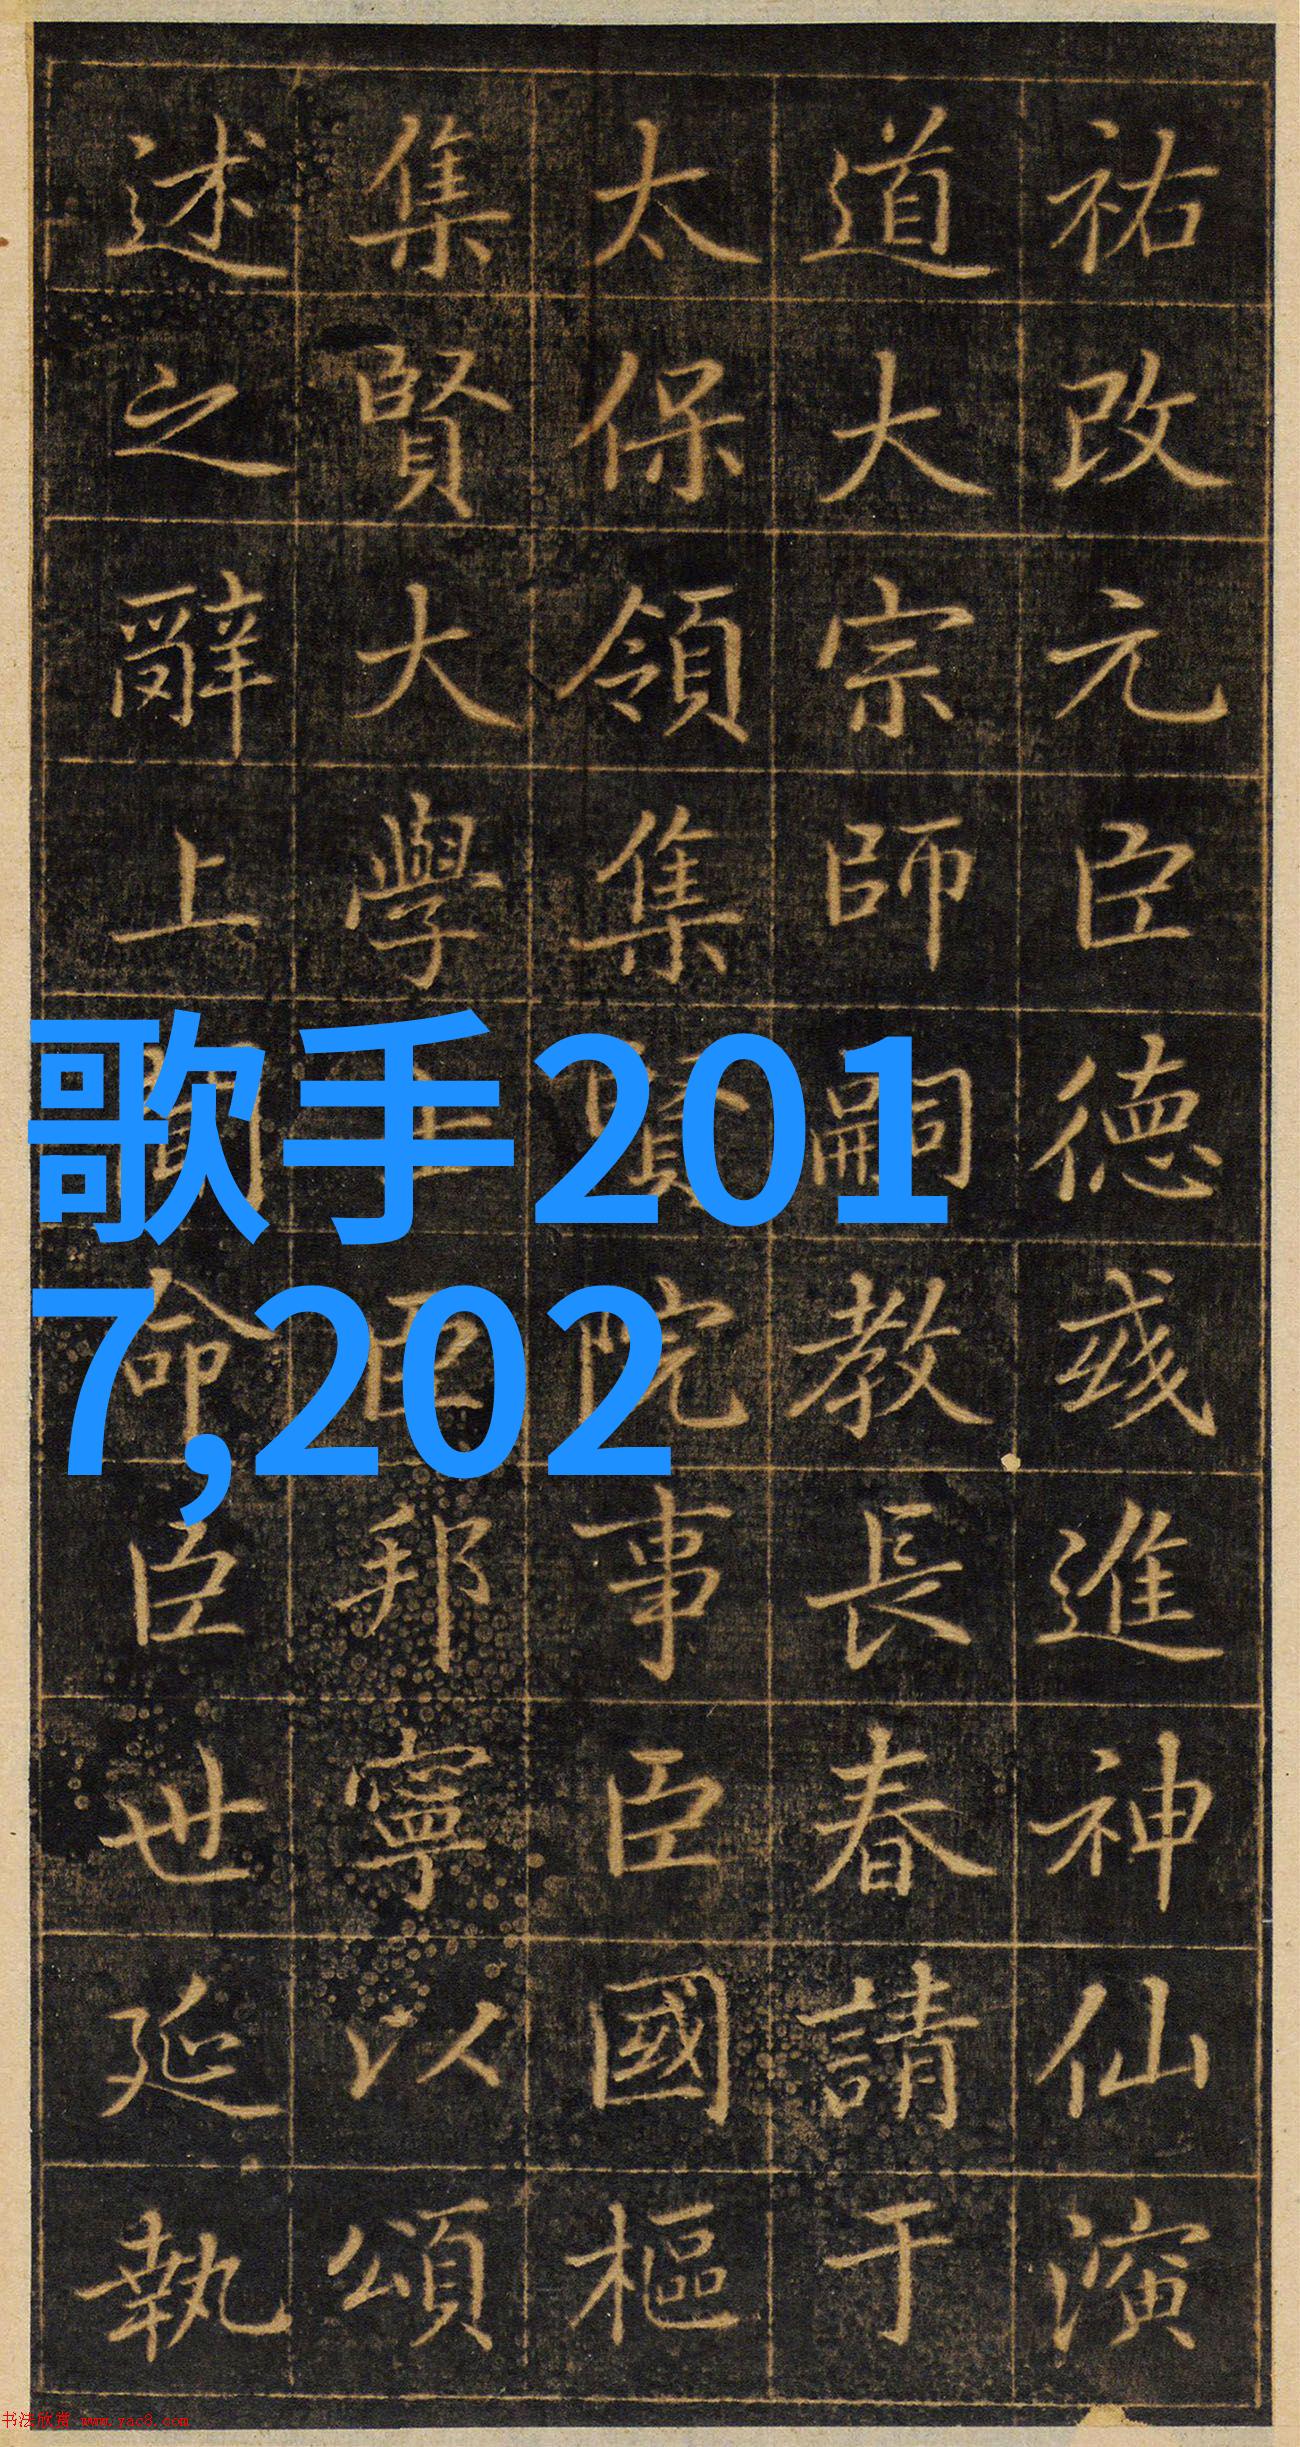 祐改元臣德彧進神仙演
道大宗師嗣教長春請于
太保領集賢院事臣國樞
集賢大學士臣邦寧以頌
述之辭上聞命臣世延執
歌手201
7,202
书法欣赏 www.yac8.com